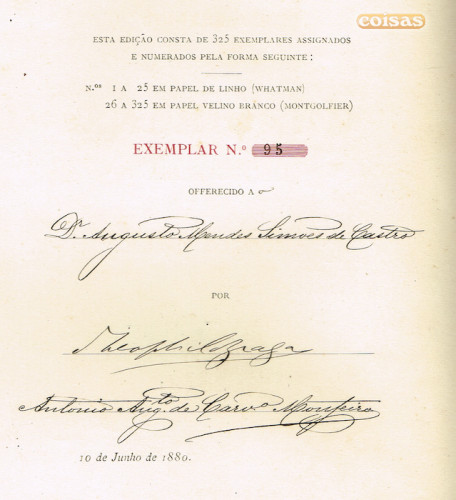 coisas
ESTA EDIÇÃO CONSTA DE 325 EXEMPLARES ASSIGNADOS
E NUMERADOS PELA FORMA SEGUINTE:
N.os 1 A 25 EM PAPEL DE LINHO (WHATMAN)
26 A 325 EM PAPEL VELINO BRANCO (MONTGOLFIER)
EXEMPLAR N.º 95
OFFERECIDO A o
Dr. Augusto Mendes Simões de Castro
POR
Theophilo Braga
Antonio Aug.to de Carv.o Monteiro
10 de Junho de 1880.